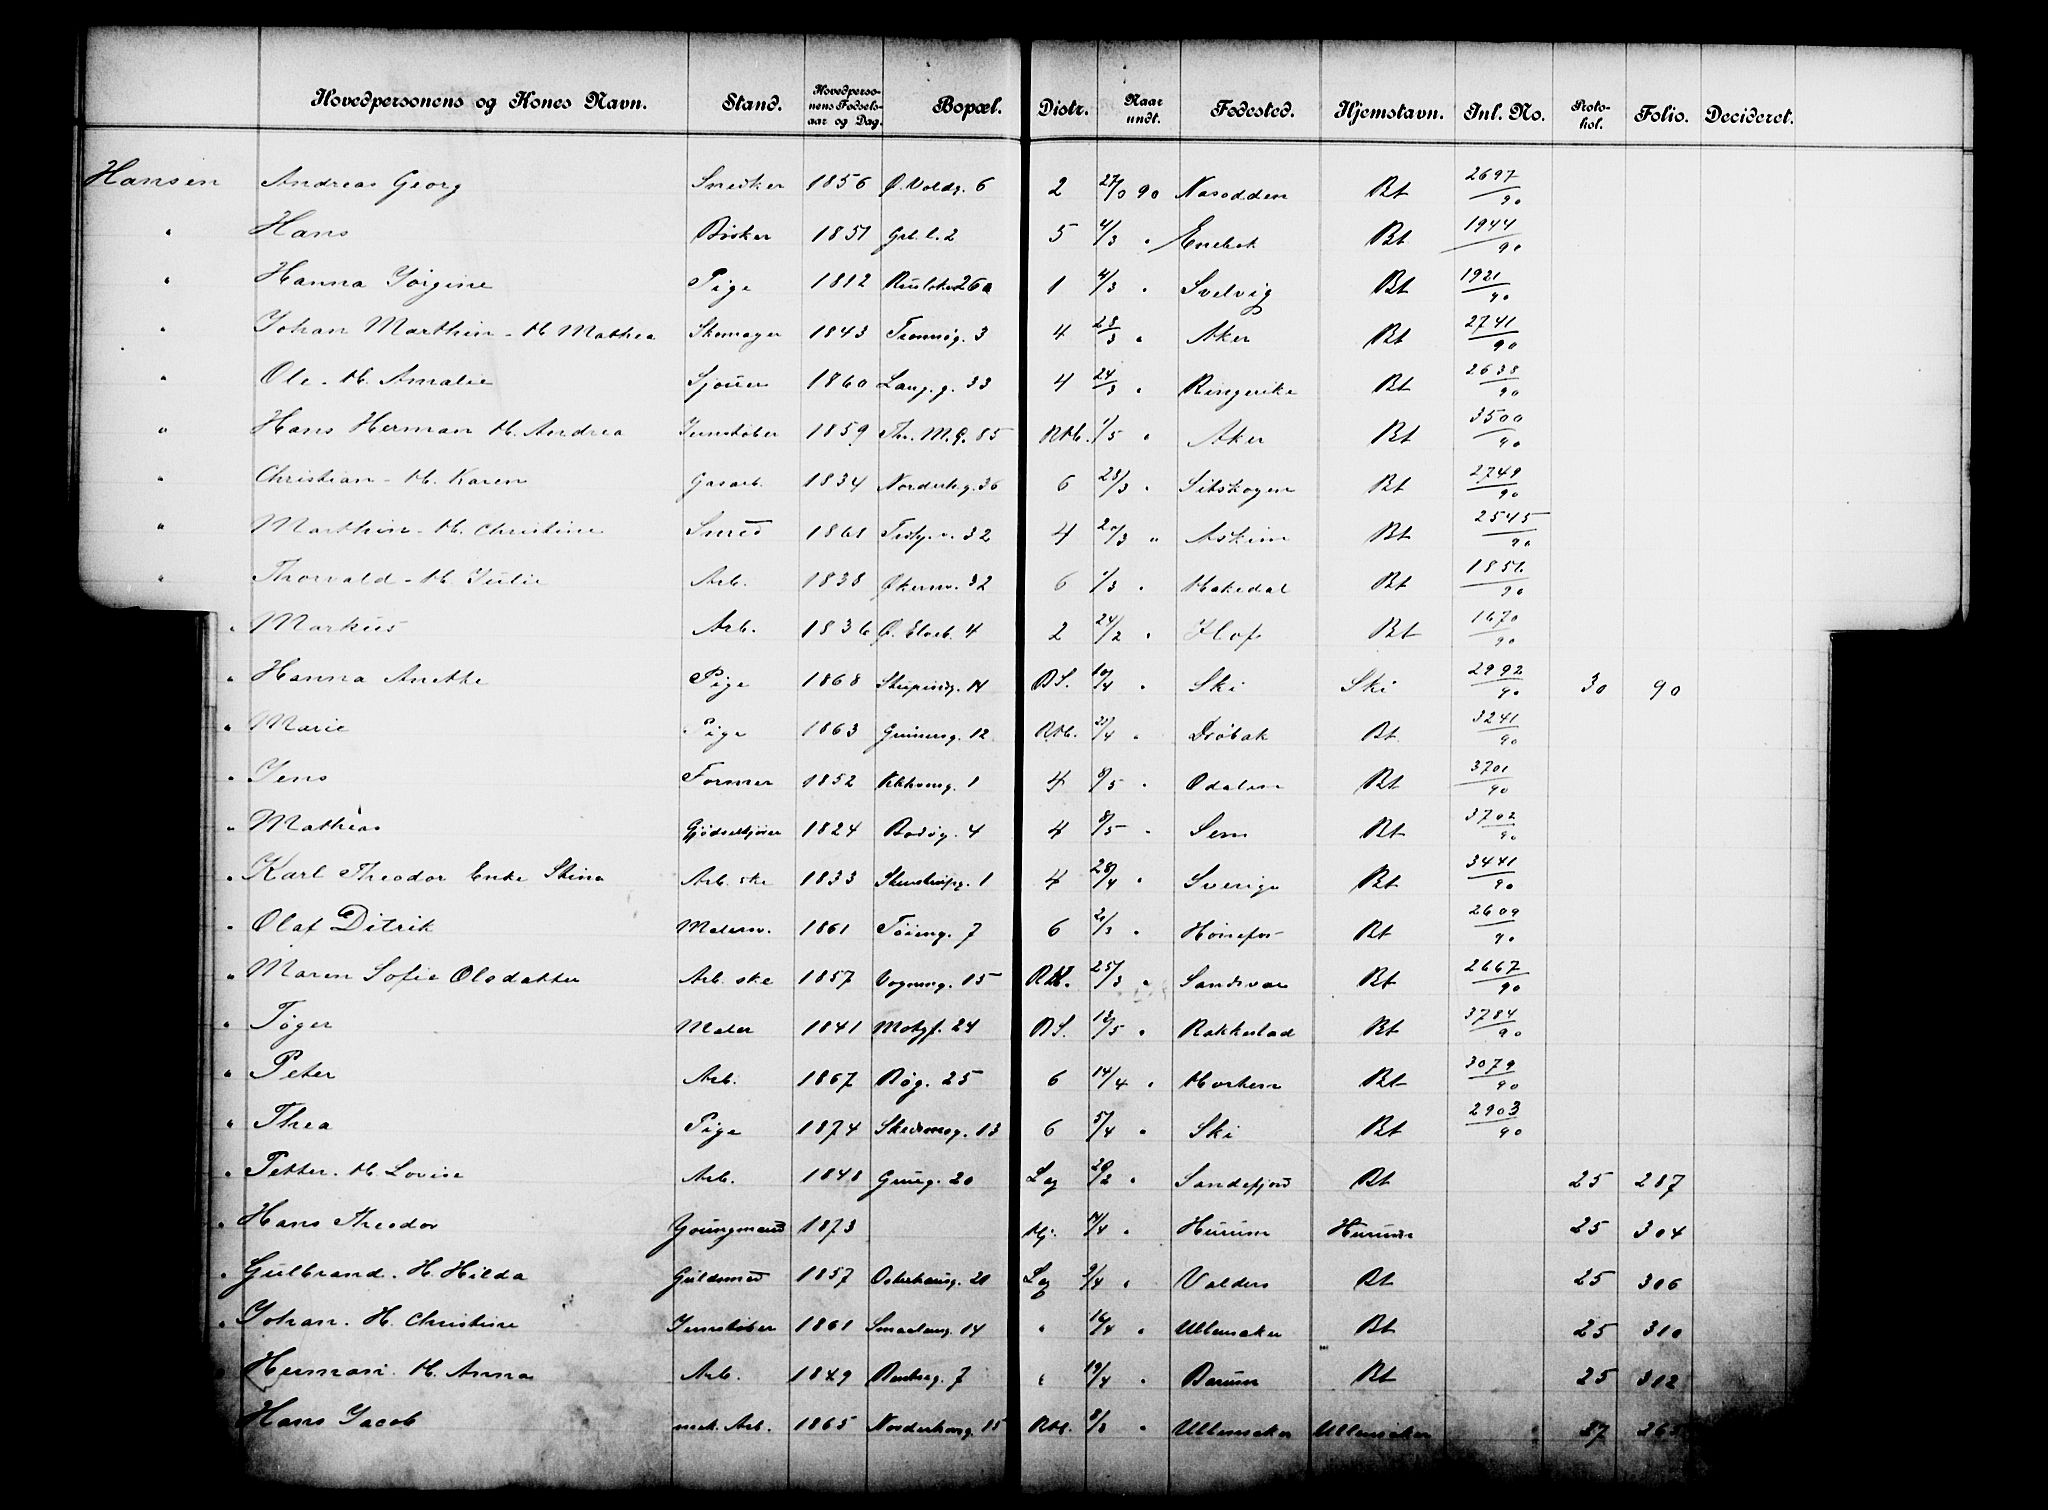 Hovedpersonens og Kones Navn. Stand. Hovedpersonens Fødselsaar og Dag. Bopæl. Distr. Naar undt. Fødested. Hjemstavn. Inl. No. Protokol. Folio. Decideret.
Hansen Andreas Georg Snedker 1856 Ø. Voldg. 6 2 27/ 90 Nasodden Bt 2697/90
" Hans Bøsker 1851 2 5 4/3 " Enebak Bt 1944/90
" Hanna Jørgine Pige 1812 26a 1 4/3 " Svelvig Bt 1921/90
" Johan Marthin - H. Mathea Skomager 1843 Tromsøg. 3 4 28/3 " Aker Bt 2741/90
" Ole - H. Amalie Sjouer 1860 Lang. g. 33 4 24/3 " Ringerike Bt 2638/90
" Hans Herman H. Andrea Jernstøber 1859 Thv. M. G. 85 RHb. 1/5 " Aker Bt 3500/90
" Christian - H. Karen Gasarb. 1834 Norderhg. 36 6 28/3 " Sitskogen Bt 2749/90
" Marthin - H. Christine Smed 1861 32 4 20/3 " Askim Bt 2545/90
" Thorvald - H. Julie Arb. 1838 Økernv. 32 6 1/3 " Hakedal Bt 1851/90
" Markus Arb. 1836 Ø. Elveb. 4 2 24/2 " Hof Bt 1670/90
" Hanna Anette Pige 1868 14 BS. 10/4 " Ski Ski 2992/90 30 90
" Marie Pige 1863 Grünersg. 12 RHb. 21/4 " Drøbak Bt 3241/90
" Jens Former 1852 1 4 8/5 " Odalen Bt 3701/90
" Mathias Gjødselkjører 1824 Bodøg. 4 4 8/5 " Sem Bt 3702/90
" Karl Theodor Enke Stina Arb. ske 1833 Stenstrupg. 1 4 28/4 " Sverige Bt 3441/90
" Olaf Ditrik Malersv. 1861 Tøieng. 7 6 21/3 " Hønefos Bt 2609/90
" Maren Sofie Olsdatter Arb. ske 1857 Vognmg. 15 RH. 25/3 " Sandsvær Bt 2667/90
" Tøger Maler 1841 Motzf. 24 BS. 12/5 " Rakkestad Bt 3784/90
" Peter Arb. 1867 Bøg. 25 6 14/4 " Horten Bt 3079/90
" Thea Pige 1874 Skedsmog. 13 6 5/4 " Ski Bt 2903/90
" Petter. H. Lovise Arb. 1848 Grueg. 20 Lag 20/2 " Sandefjord Bt 25 287
" Hans Theodor Joungmand 1873 Hj. /4 " Hurum Hurum 25 304
" Gulbrand. H. Hilda Guldsmed 1857 Osterhausg. 21 Lag 9/4 " Valders Bt 25 306
" Johan. H. Christine Jernstøber 1861 Smaleng. 14 " 16/4 " Ullensaker Bt 25 310
" Herman. H. Anna Arb. 1849 7 " 19/4 " Bærum Bt 25 312
Hans Jacob mek. Arb. 1865 Norderhovg. 15 RHb. 8/3 " Ullensaker Ullensaker 27